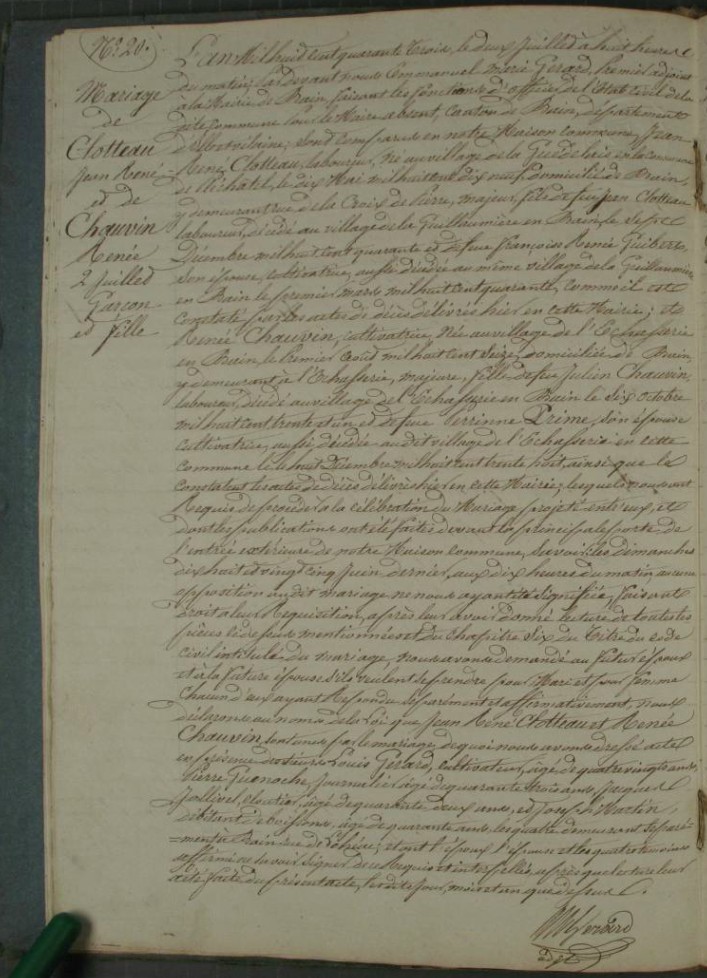 N° 20.
Mariage
de
Clotteau
Jean René
et de
Chauvin
Renée
2 Juillet
Garçon
et fille
L'an Mil huit cent quarante Trois, le deux Juillet à huit heures
du matin, Pardevant nous Emmanuel Marie Gérard, Premier adjoint
à la Mairie de Bain, faisant les fonctions d'officier de l'état civil de la
dite commune pour le Maire absent, Canton de Bain, département
d'Ille et vilaine, sont comparus en notre Maison commune, Jean
René Clotteau, laboureur, Né au village de la en la commune
de le dix Mai mil huit cent dix neuf, domicilié de Bain,
y demeurant rue de la Croix de Pierre, majeur, fils de feu Jean Clotteau
laboureur, décédé au village de la Guillaumière en Bain, le Sept
Décembre mil huit cent quarante et de feue Françoise Renée Guibert,
son épouse, cultivatrice, aussi décédée au même village de la Guillaumière
en Bain le premier mars mil huit cent quarante, comme il est
constaté par les actes de décès délivrés hier en cette Mairie; et
Renée Chauvin, cultivatrice, Née au village de l'Echasserie
en Bain, le Premier Août mil huit cent seize, domiciliée de Bain,
y demeurant à l'Echasserie, majeure, fille de feu Julien Chauvin,
laboureur, décédé au village de l'Echasserie en Bain le Six octobre
mil huit cent trente et un et de feue Perrinne Prime, son épouse
cultivatrice, aussi décédée au dit village de l'Echasserie en cette
commune le huit Décembre mil huit cent trente huit, ainsi que le
constatent les actes de décès délivrés hier en cette Mairie; lesquels nous ont
Requis de procéder à la célébration du Mariage projeté entr'eux, et
dont les publications ont été faites devant la principale porte de
l'entrée extérieure de notre Maison commune, Savoir: les dimanches
dix huit et vingt cinq Juin dernier, aux dix heures du matin, aucune
opposition au dit mariage ne nous ayant été signifiée, faisant
droit à leur Requisition, après leur avoir donné lecture de toutes les
pièces ci-dessus mentionnées et du Chapitre six du Titre du code
civil intitulé du mariage, nous avons demandé au futur époux
et à la future épouse s'ils veulent se prendre pour Mari et pour femme
Chacun d'eux ayant Répondu séparément et affirmativement, nous
déclarons au nom de la Loi que Jean René Clotteau et Renée
Chauvin, sont unis par le mariage, de quoi nous avons dressé acte
en présence des sieurs Louis Gérard, cultivateur, âgé de quatre vingt ans,
Pierre journalier, âgé de quarante trois ans, Jacques
Jollivel, cloutier, âgé de quarante deux ans, et Joseph Martin,
débitant de boissons, âgé de quarante ans, les quatre demeurant séparé-
=ment à Bain rue de et ont l'époux l'épouse et les quatre témoins
affirmé ne savoir signer de ce Requis et interpellés, après que lecture leur
a été faite du présent acte, les dits jour, mois et an que dessus.
Gérard
adjt